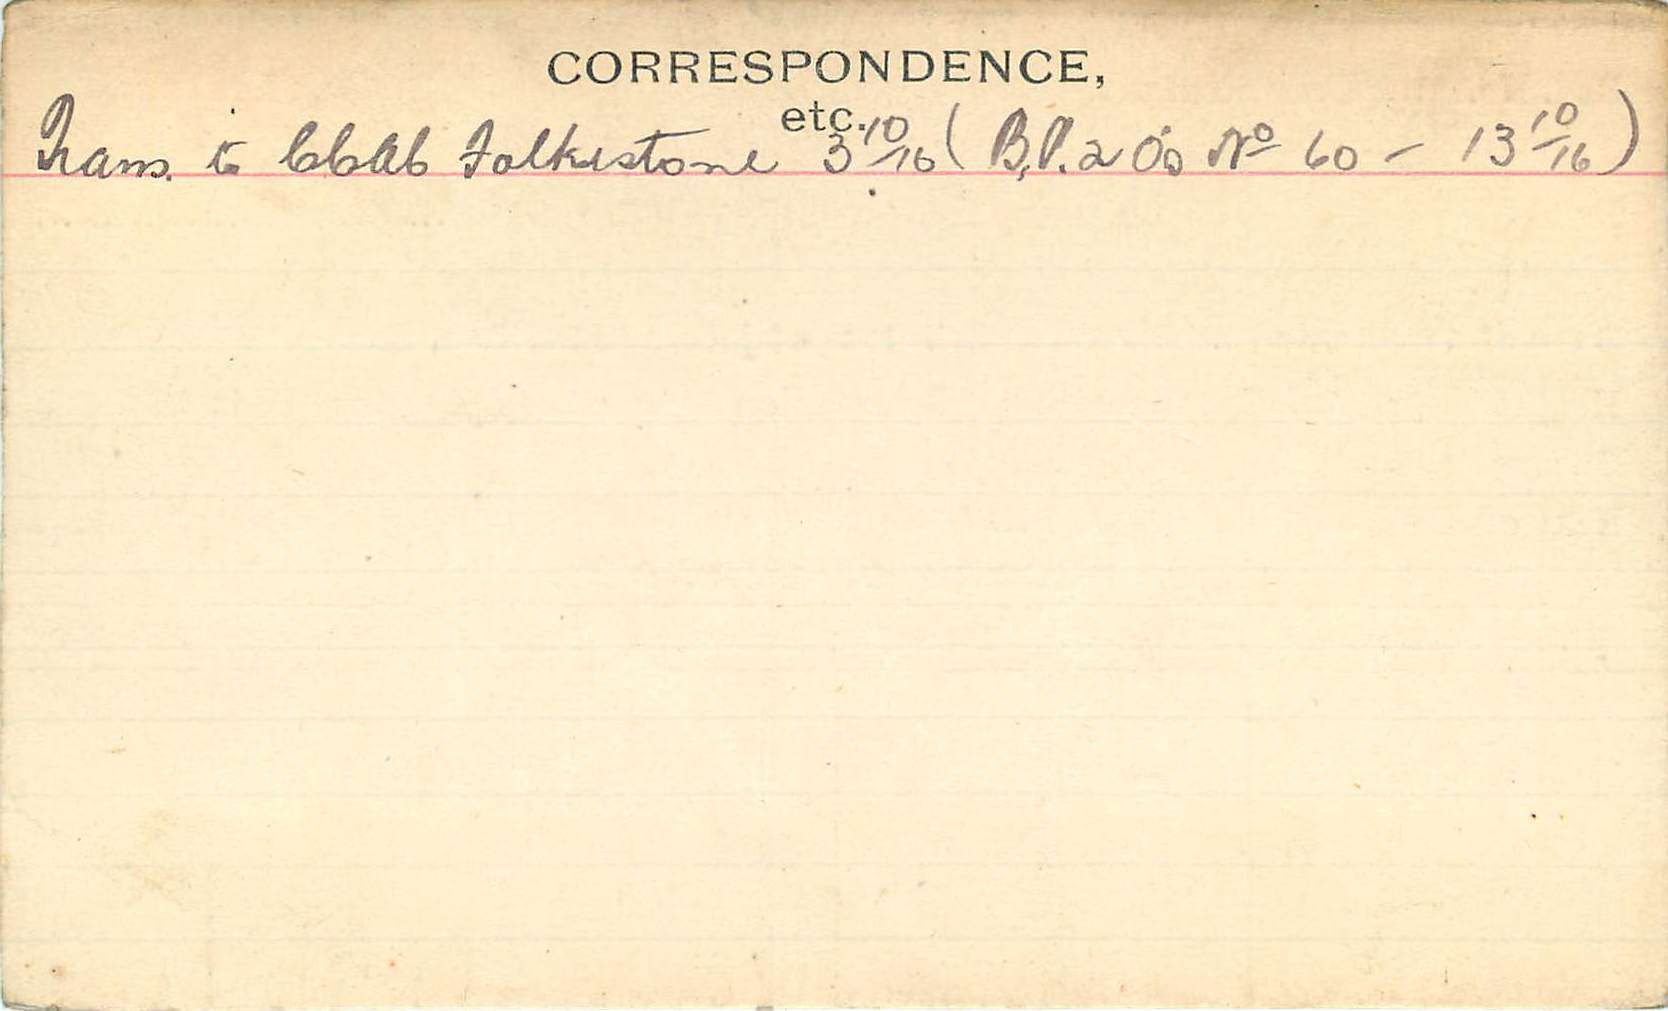 CORRESPONDENCE,
etc.
Trans. to CCAC Folkestone 3 10/16 (B.P. 2 Oo No 60 - 13 10/16)